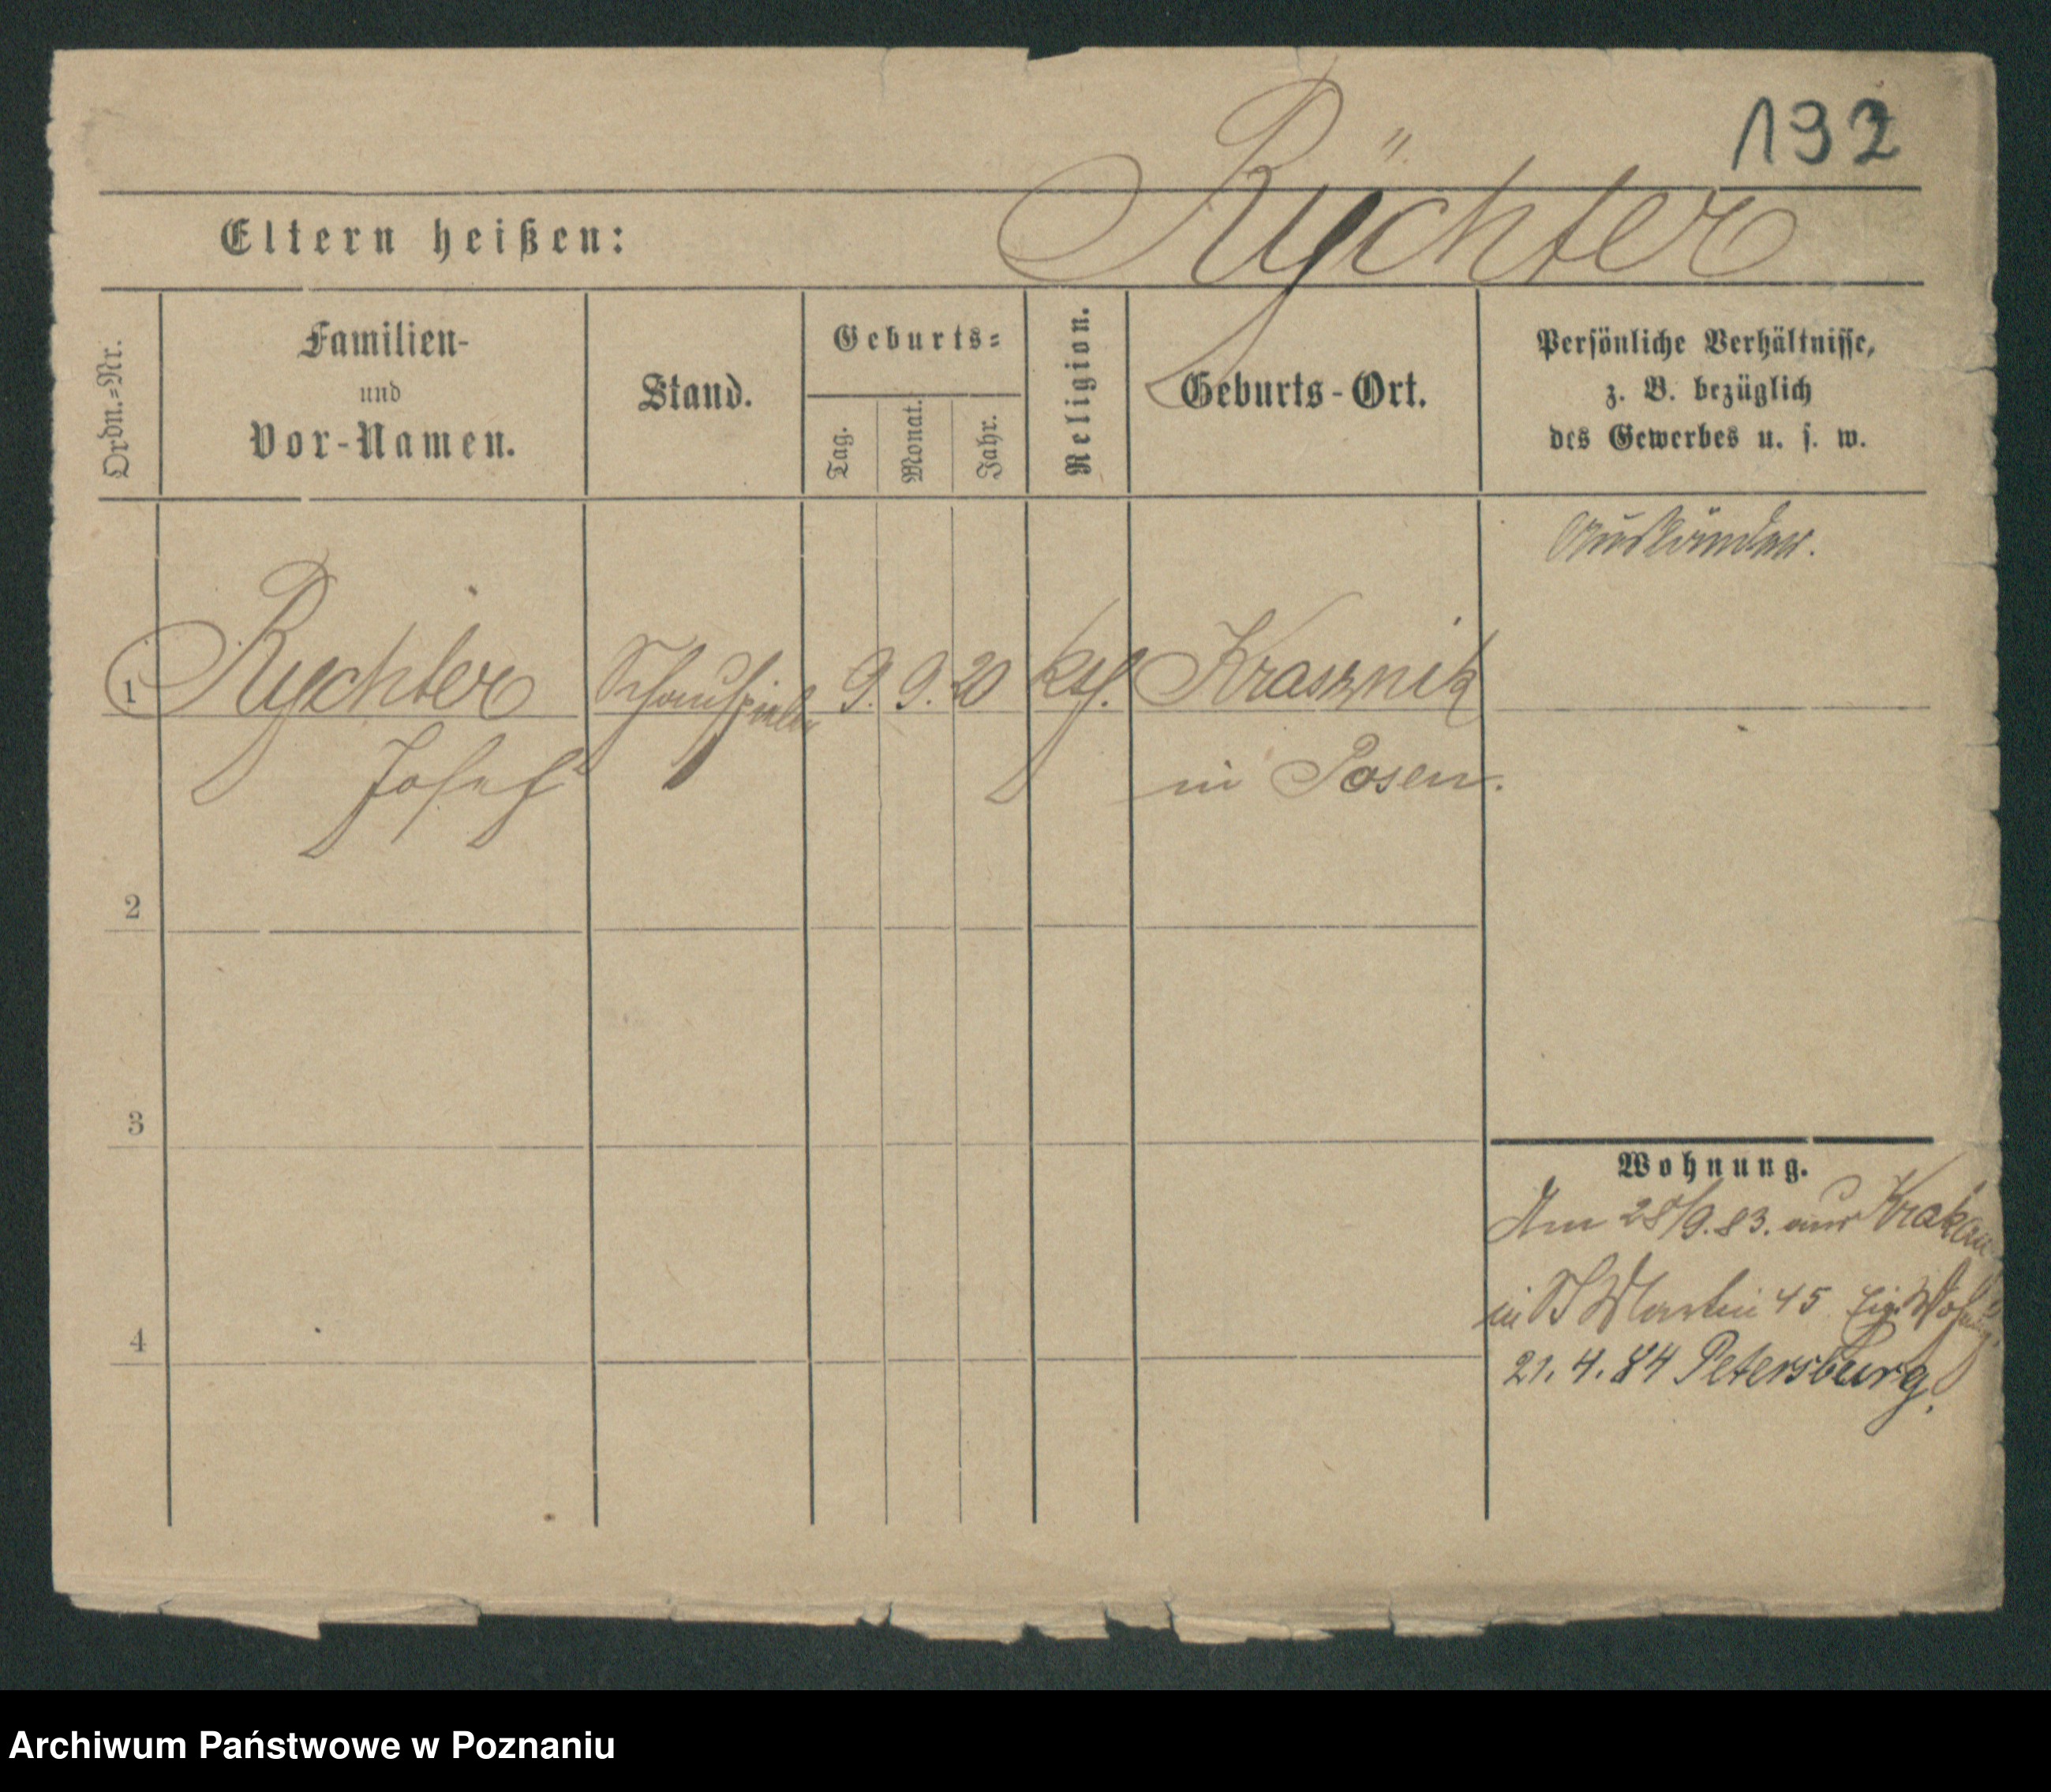 192
Rÿchter
Eltern heißen:
Ordn.=Nr.
Familien-
und
Vor-Namen.
Stand.
Geburts=
Tag.
Monat.
Jahr.
Religion.
Geburts-Ort.
Persönliche Verhältnisse,
z. B. bezüglich
des Gewerbes u. s. w.
Ausländer.
1 Rychter Schauspieler 9. 9. 20 kth. Krasznik
Josef in Posen.
2
3
4
Wohnung.
Am 28/9. 83. aus Krakau
in St Martin 45
21. 4. 84 Petersburg.
Archiwum Państwowe w Poznaniu